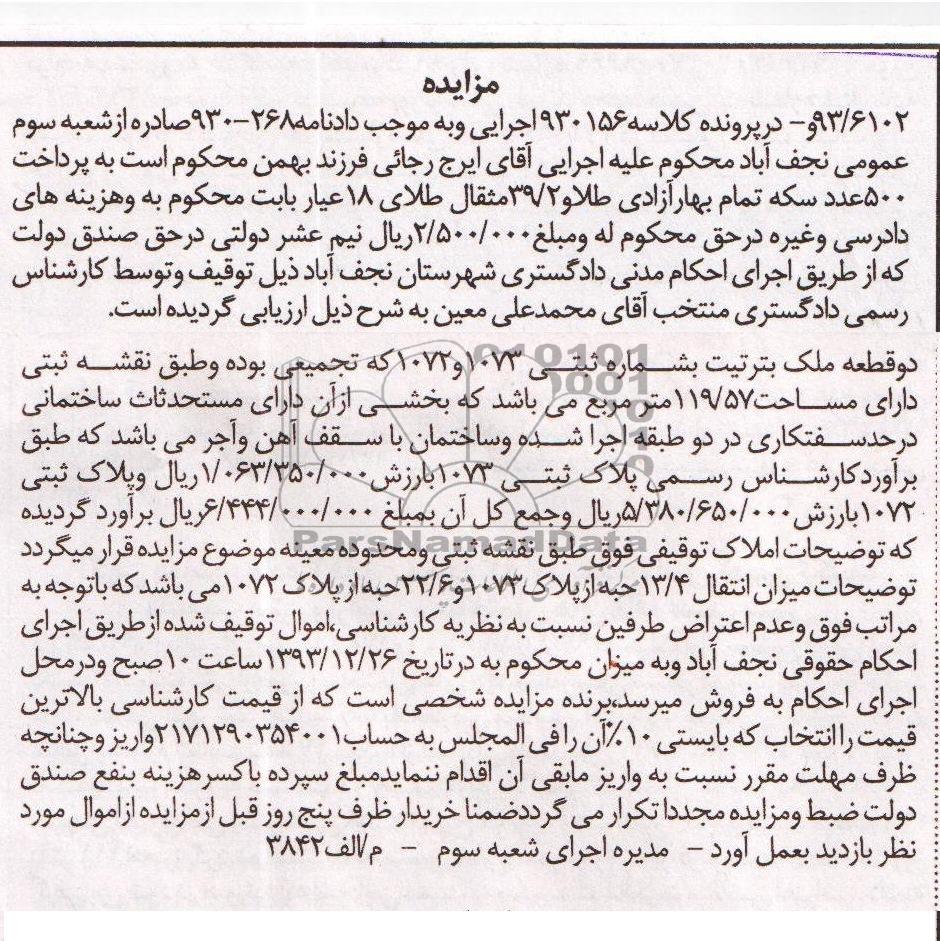 مزایده
۹۳/۶۱۰۲و- درپرونده کلاسه۹۳۰۱۵۶اجرایی وبه موجب دادنامه۲۶۸-۹۳۰صادره ازشعبه سوم
عمومی نجف آباد محکوم علیه اجرایی آقای ایرج رجائی فرزند بهمن محکوم است به پرداخت
۵۰۰عدد سکه تمام بهارآزادی طلاو۳۹/۲مثقال طلای ۱۸عیار بابت محکوم به وهزینه های
دادرسی وغیره درحق محکوم له ومبلغ۲/۵۰۰/۰۰۰ریال نیم عشر دولتی درحق صندق دولت
که از طریق اجرای احکام مدنی دادگستری شهرستان نجف آباد ذیل توقیف وتوسط کارشناس
رسمی دادگستری منتخب آقای محمدعلی معین به شرح ذیل ارزیابی گردیده است.
دوقطعه ملک بترتیت بشماره ثبتی ۱۰۷۳و۱۰۷۲که تجمیعی بوده وطبق نقشه ثبتی
دارای مساحت۱۱۹/۵۷متر مربع می باشد که بخشی ازآن دارای مستحدثاث ساختمانی
درحدسفتکاری در دو طبقه اجرا شده وساختمان با سقف آهن وآجر می باشد که طبق
برآوردکارشناس رسمی پلاک ثبتی ۱۰۷۳بارزش ۱/۰۶۳/۳۵۰/۰۰۰ریال وپلاک ثبتی
۱۰۷۲بارزش ۵/۳۸۰/۶۵۰/۰۰۰ریال وجمع کل آن بمبلغ ۶/۴۴۴/۰۰۰/۰۰۰ریال برآورد گردیده
که توضیحات املاک توقیفی فوق طبق نقشه ثبتی ومحدوده معینه موضوع مزایده قرار میگردد
توضیحات میزان انتقال ۱۳/۴حبه ازپلاک۱۰۷۳و۲۲/۶حبه ازپلاک ۱۰۷۲می باشدکه باتوجه به
مراتب فوق وعدم اعتراض طرفین نسبت به نظریه کارشناسی،اموال توقیف شده ازطریق اجرای
احکام حقوقی نجف آباد وبه میزان محکوم به درتاریخ ۱۳۹۳/۱۲/۲۶ساعت ۱۰صبح ودرمحل
اجرای احکام به فروش میرسد،برنده مزایده شخصی است که از قیمت کارشناسی بالاترین
قیمت راانتخاب که بایستی ۱۰٪آن رافی المجلس به حساب۲۱۷۱۲۹۰۳۵۴۰۰۱واریز وچنانچه
ظرف مهلت مقرر نسبت به واریز مابقی آن اقدام ننمایدمبلغ سپرده باکسرهزینه بنفع صندق
دولت ضبط ومزایده مجددا تکرار می گرددضمنا خریدار ظرف پنج روز قبل ازمزایده ازاموال مورد
نظر بازدید بعمل آورد - مدیره اجرای شعبه سوم - م/الف۳۸۴۲
ParsNamadData